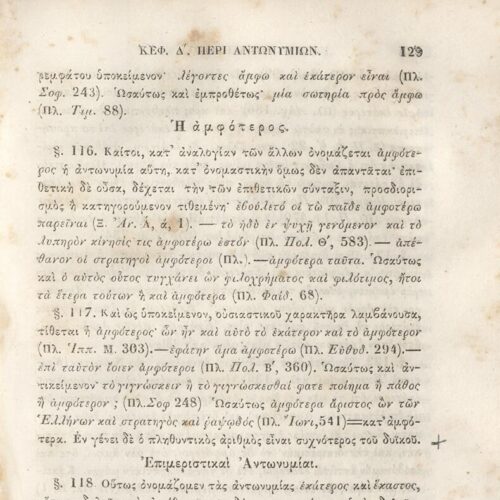 ΚΕΦ. Δʹ. ΠΕΡΙ ΑΝΤΩΝΥΜΙΩΝ. 129
ρεμφάτου ὑποκείμενον· λέγοντες ἄμφω καὶ ἑκάτερον εἶναι (Πλ.
Σοφ. 243). Ὡσαύτως καὶ ἐμπροθέτως· μία σωτηρία πρὸς ἄμφω
(Πλ. Τιμ. 88).
Ἡ ἀμφότερος.
§. 116. Καίτοι, κατ' ἀναλογίαν τῶν ἄλλων ὀνομάζεται ἀμφότε-
ρος ἡ ἀντωνυμία αὕτη, κατ' ὀνομαστικὴν ὅμως δὲν ἀπαντᾶται· ἐπι-
θετικὴ δὲ οὖσα, δέχεται τὴν τῶν ἐπιθετικῶν σύνταξιν, προσδιορι-
σμὸς ἢ κατηγορούμενον τιθεμένη· ἐβούλετό οἱ τὼ παῖδε ἀμφοτέρω
παρεῖναι (Ξ. Ἀν. Α, ά, 1). — τὸ ἡδὺ ἐν ψυχῇ γενόμενον καὶ τὸ
λυπηρὸν κίνησίς τις ἀμφοτέρω ἐστόν (Πλ. Πολ. Θʹ, 583). — ἀπέ-
θανον οἱ στρατηγοὶ ἀμφότεροι (Πλ.).—ἀμφότερα ταῦτα. Ὡσαύτως
καὶ ὁ αὐτὸς οὗτος τυγχάνει ὢν φιλοχρήματος καὶ φιλότιμος, ἤτοι
τὰ ἕτερα τούτων ἢ καὶ ἀμφότερα (Πλ. Φαίδ. 68).
§. 117. Καὶ ὡς ὑποκείμενον, οὐσιαστικοῦ χαρακτῆρα λαμβάνουσα,
τίθεται ἡ ἀμφότερος· ὧν ἦν καὶ αὐτὸ τὸ ἑκάτερον καὶ τὸ ἀμφότερον
(Πλ. Ἱππ. Μ. 303).—ἐφάτην ἅμα ἀμφοτέρω (Πλ. Εὐθυδ. 294).—
ἐπὶ ταὐτὸν ἴοιεν ἀμφότεροι (Πλ. Πολ. Βʹ, 360). Ὡσαύτως καὶ ἀν-
τικείμενον· τὸ γιγνώσκειν ἢ τὸ γιγνώσκεσθαί φατε ποίημα ἢ πάθος
ἢ ἀμφότερον ; (Πλ. Σοφ 248) Ὡσαύτως ἀμφότερα ἄριστος ὢν τῶν
Ἑλλήνων καὶ στρατηγὸς καὶ ῥαψῳδός (Πλ. Ἴων, 541)=κατ' ἀμφό-
τερα. Ἐν γένει δὲ ὁ πληθυντικὸς ἀριθμὸς εἶναι συχνότερος τοῦ δυϊκοῦ. +
Ἐπιμεριστικαὶ Ἀντωνυμίαι.
§. 118 Οὕτως ὀνομάζομεν τὰς ἀντωνυμίας ἑκάτερος καὶ ἕκαστος,